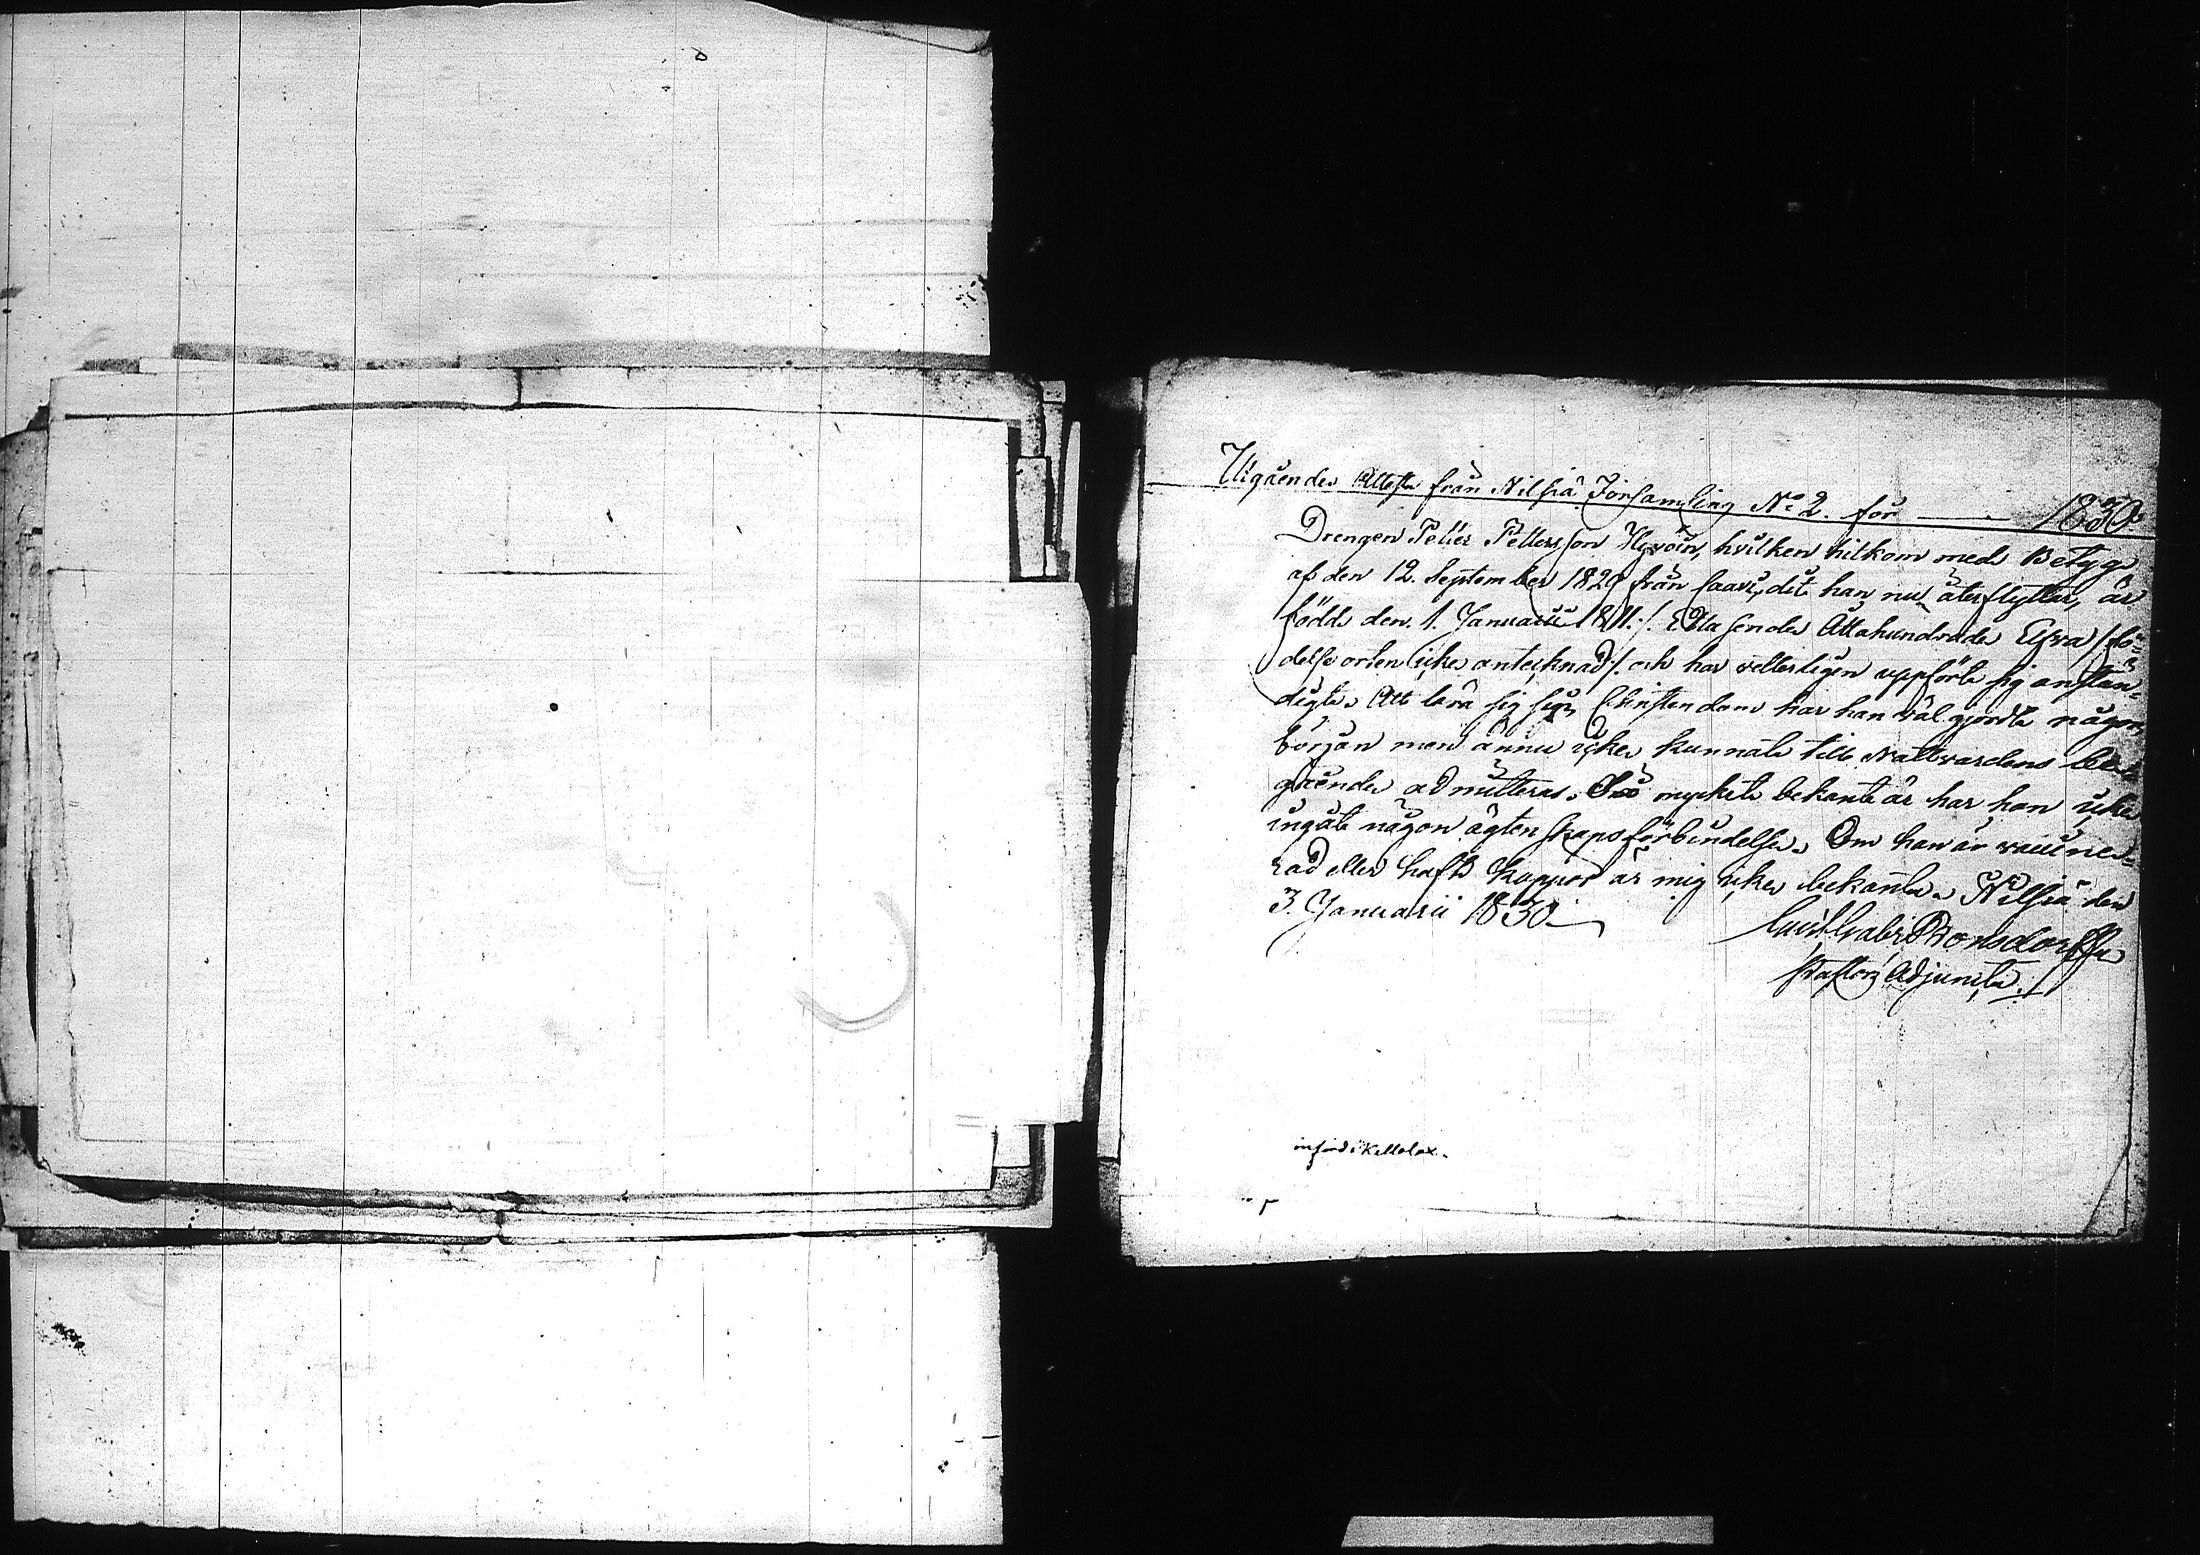 Utgående Attest från Nilsiä Församling No 2. för 1830.
Drengen Petter Pettersson Hyvöin, hvilken hitkom med Betyg
af den 12. September 1829 från Caavi, dit han nu återflyttar, är
född den 1. Januarii 1811 /: Ettusende Åttahundrade Elfva /: fö-
delse orten icke antecknad :/ och har veterligen uppfört sig anstän-
digt. Att lära sig sin Christendom har han väl gjordt någon
början men ännu icke kunnat till Nattvardens be-
gående admitteras. Så mycket bekant är har han icke
ingått någon ägtenskapsförbindelse. Om han är vaccine-
rad eller haft koppor är mig icke bekant. Nilsiä den
3. Januarii 1830.
Gabr. Bonsdorff
Pastors Adjunct.
införd i Kellolax.